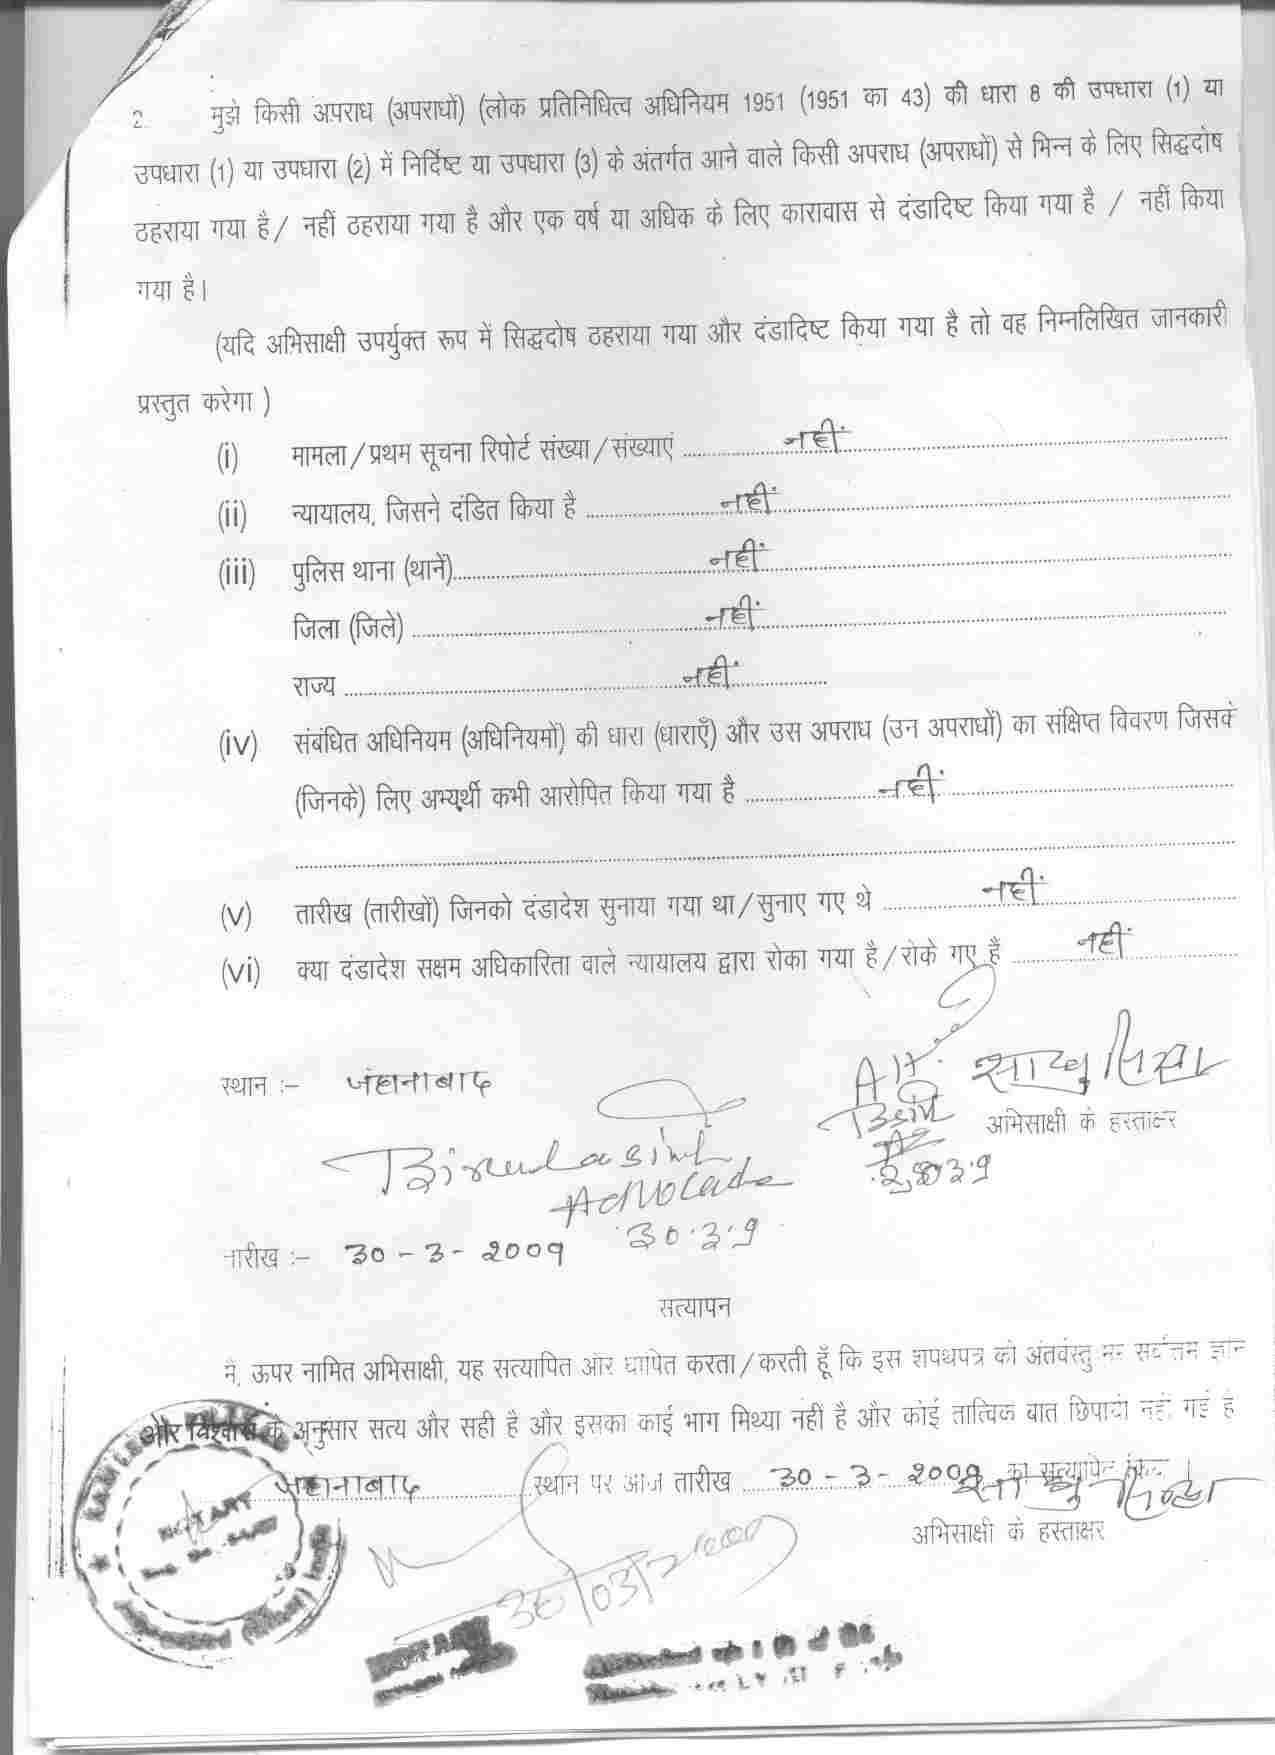 2. मुझे किसी अपराध (अपराधों) (लोक प्रतिनिधित्व अधिनियम 1951 (1951 का 43) की धारा 8 की उपधारा (1) या
उपधारा (1) या उपधारा (2) में निर्दिष्ट या उपधारा (3) के अंतर्गत आने वाले किसी अपराध (अपराधों) से भिन्न के लिए सिद्धदोष
ठहराया गया है / नहीं ठहराया गया है और एक वर्ष या अधिक के लिए कारावास से दंडादिष्ट किया गया है / नहीं किया
गया है।
(यदि अभिसाक्षी उपर्युक्त रूप में सिद्धदोष ठहराया गया और दंडादिष्ट किया गया है तो वह निम्नलिखित जानकारी
प्रस्तुत करेगा )
(i) मामला / प्रथम सूचना रिपोर्ट संख्या / संख्याएं नहीं
(ii) न्यायालय, जिसने दंडित किया है नहीं
(iii) पुलिस थाना (थानें) नहीं
जिला (जिले) नहीं
राज्य नहीं
(iv) संबंधित अधिनियम (अधिनियमों) की धारा (धाराएँ) और उस अपराध (उन अपराधों) का संक्षिप्त विवरण जिसके
(जिनके) लिए अभ्यर्थी कभी आरोपित किया गया है नहीं
(v) तारीख (तारीखों) जिनको दंडादेश सुनाया गया था / सुनाए गए थे नहीं
(vi) क्या दंडादेश सक्षम अधिकारिता वाले न्यायालय द्वारा रोका गया है / रोके गए हैं नहीं
स्थान :- जहानाबाद
अभिसाक्षी के हस्ताक्षर
Advocate
30.3.9
तारीख :- 30-3-2009
सत्यापन
मैं, ऊपर नामित अभिसाक्षी, यह सत्यापित और घोषित करता / करती हूँ कि इस शपथपत्र की अंतर्वस्तु मेरे सर्वोत्तम ज्ञान
और विश्वास के अनुसार सत्य और सही है और इसका कोई भाग मिथ्या नहीं है और कोई तात्विक बात छिपायी नहीं गई है
जहानाबाद स्थान पर आज तारीख 30-3-2009 को सत्यापित किया।
अभिसाक्षी के हस्ताक्षर
NOTARY
30/03/2009
NOTARY